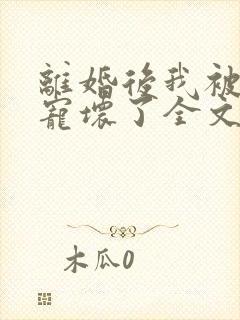 離婚後我被
寵壞了全文
木瓜0